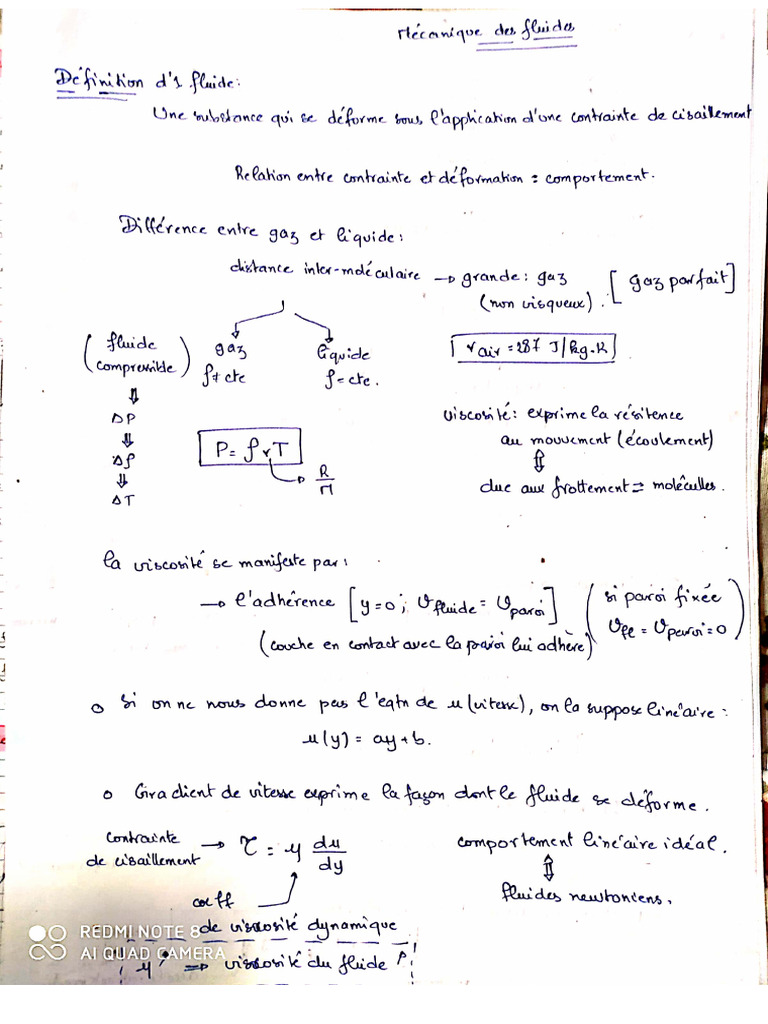 Mécanique des fluides
Définition d'1 fluide:
Une substance qui se déforme sous l'application d'une contrainte de cisaillement
Relation entre contrainte et déformation = comportement.
Différence entre gaz et liquide:
distance inter-moléculaire → grande: gaz [gaz parfait]
(non visqueux).
(fluide compressible) gaz liquide r air = 287 J/kg.K
ρ ≠ cte ρ = cte.
⇓
ΔP viscosité: exprime la résitence
⇓ P = ρ r T au mouvement (écoulement)
Δρ → R/M ⇕
⇓ due aux frottement = molécules.
ΔT
la viscosité se manifeste par:
→ l'adhérence [y=0; v fluide = v paroi] (si paroi fixée
(couche en contact avec la paroi lui adhère) v fl = v paroi = 0)
o si on ne nous donne pas l'eqtn de u (vitesse), on la suppose linéaire:
u(y) = ay + b.
o Gradient de vitesse exprime la façon dont le fluide se déforme.
contrainte de cisaillement → τ = μ du/dy comportement linéaire idéal.
⇕
coeff fluides newtoniens.
de viscosité dynamique
REDMI NOTE 8
AI QUAD CAMERA
"μ" ⇒ viscosité du fluide